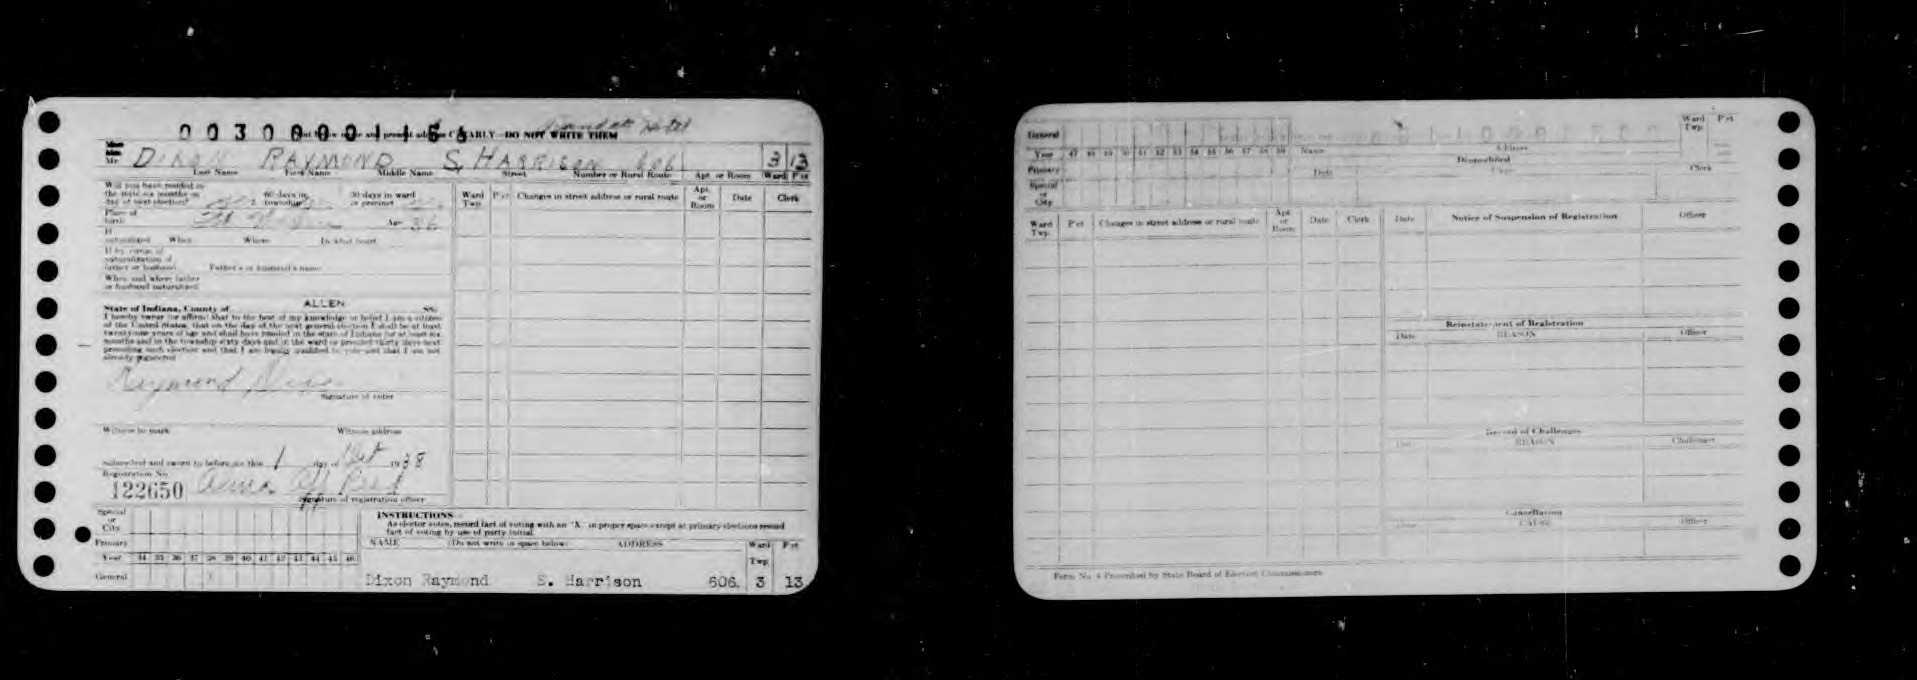 00300001156
Print below name and present address CLEARLY—DO NOT WRITE THEM
Hotel
Mr. DIXON RAYMOND S. HARRISON 606 3 13
Last Name First Name Middle Name Street Number or Rural Route Apt. or Room Ward P'ct
Will you have resided in
the state six months on 60 days in 30 days in ward
day of next election? yes township yes or precinct yes
Place of
birth Ft Wayne Age 36
If
naturalized When Where In what court
If by virtue of
naturalization of
father or husband Father's or husband's name
When and where father
or husband naturalized
State of Indiana, County of ALLEN SS:
I hereby swear (or affirm) that to the best of my knowledge or belief I am a citizen
of the United States, that on the day of the next general election I shall be at least
twenty-one years of age and shall have resided in the state of Indiana for at least six
months and in the township sixty days and in the ward or precinct thirty days next
preceding such election and that I am legally qualified to vote and that I am not
already registered
Raymond Dixon
Signature of voter
Witness to mark Witness address
Subscribed and sworn to before me this 1 day of Oct 1938
Registration No.
122650
Signature of registration officer
Ward Twp. P'ct Changes in street address or rural route Apt. or Room Date Clerk
Special
or
City
Primary
Year 34 35 36 37 38 39 40 41 42 43 44 45 46
General X
INSTRUCTIONS
As elector votes, record fact of voting with an "X" in proper space except at primary elections record
fact of voting by use of party initial.
NAME (Do not write in space below) ADDRESS Ward Twp. P'ct
Dixon Raymond S. Harrison 606. 3 13
General
Year 47 48 49 50 51 52 53 54 55 56 57 58 59
Primary
Special
or
City
Name Address Ward Twp. P'ct
Disqualified
Date Cause Clerk
Ward Twp. P'ct Changes in street address or rural route Apt. or Room Date Clerk
Date Notice of Suspension of Registration Officer
Reinstatement of Registration
Date REASON Officer
Record of Challenges
Date REASON Challenger
Cancellation
Date CAUSE Officer
Form No. 4 Prescribed by State Board of Election Commissioners